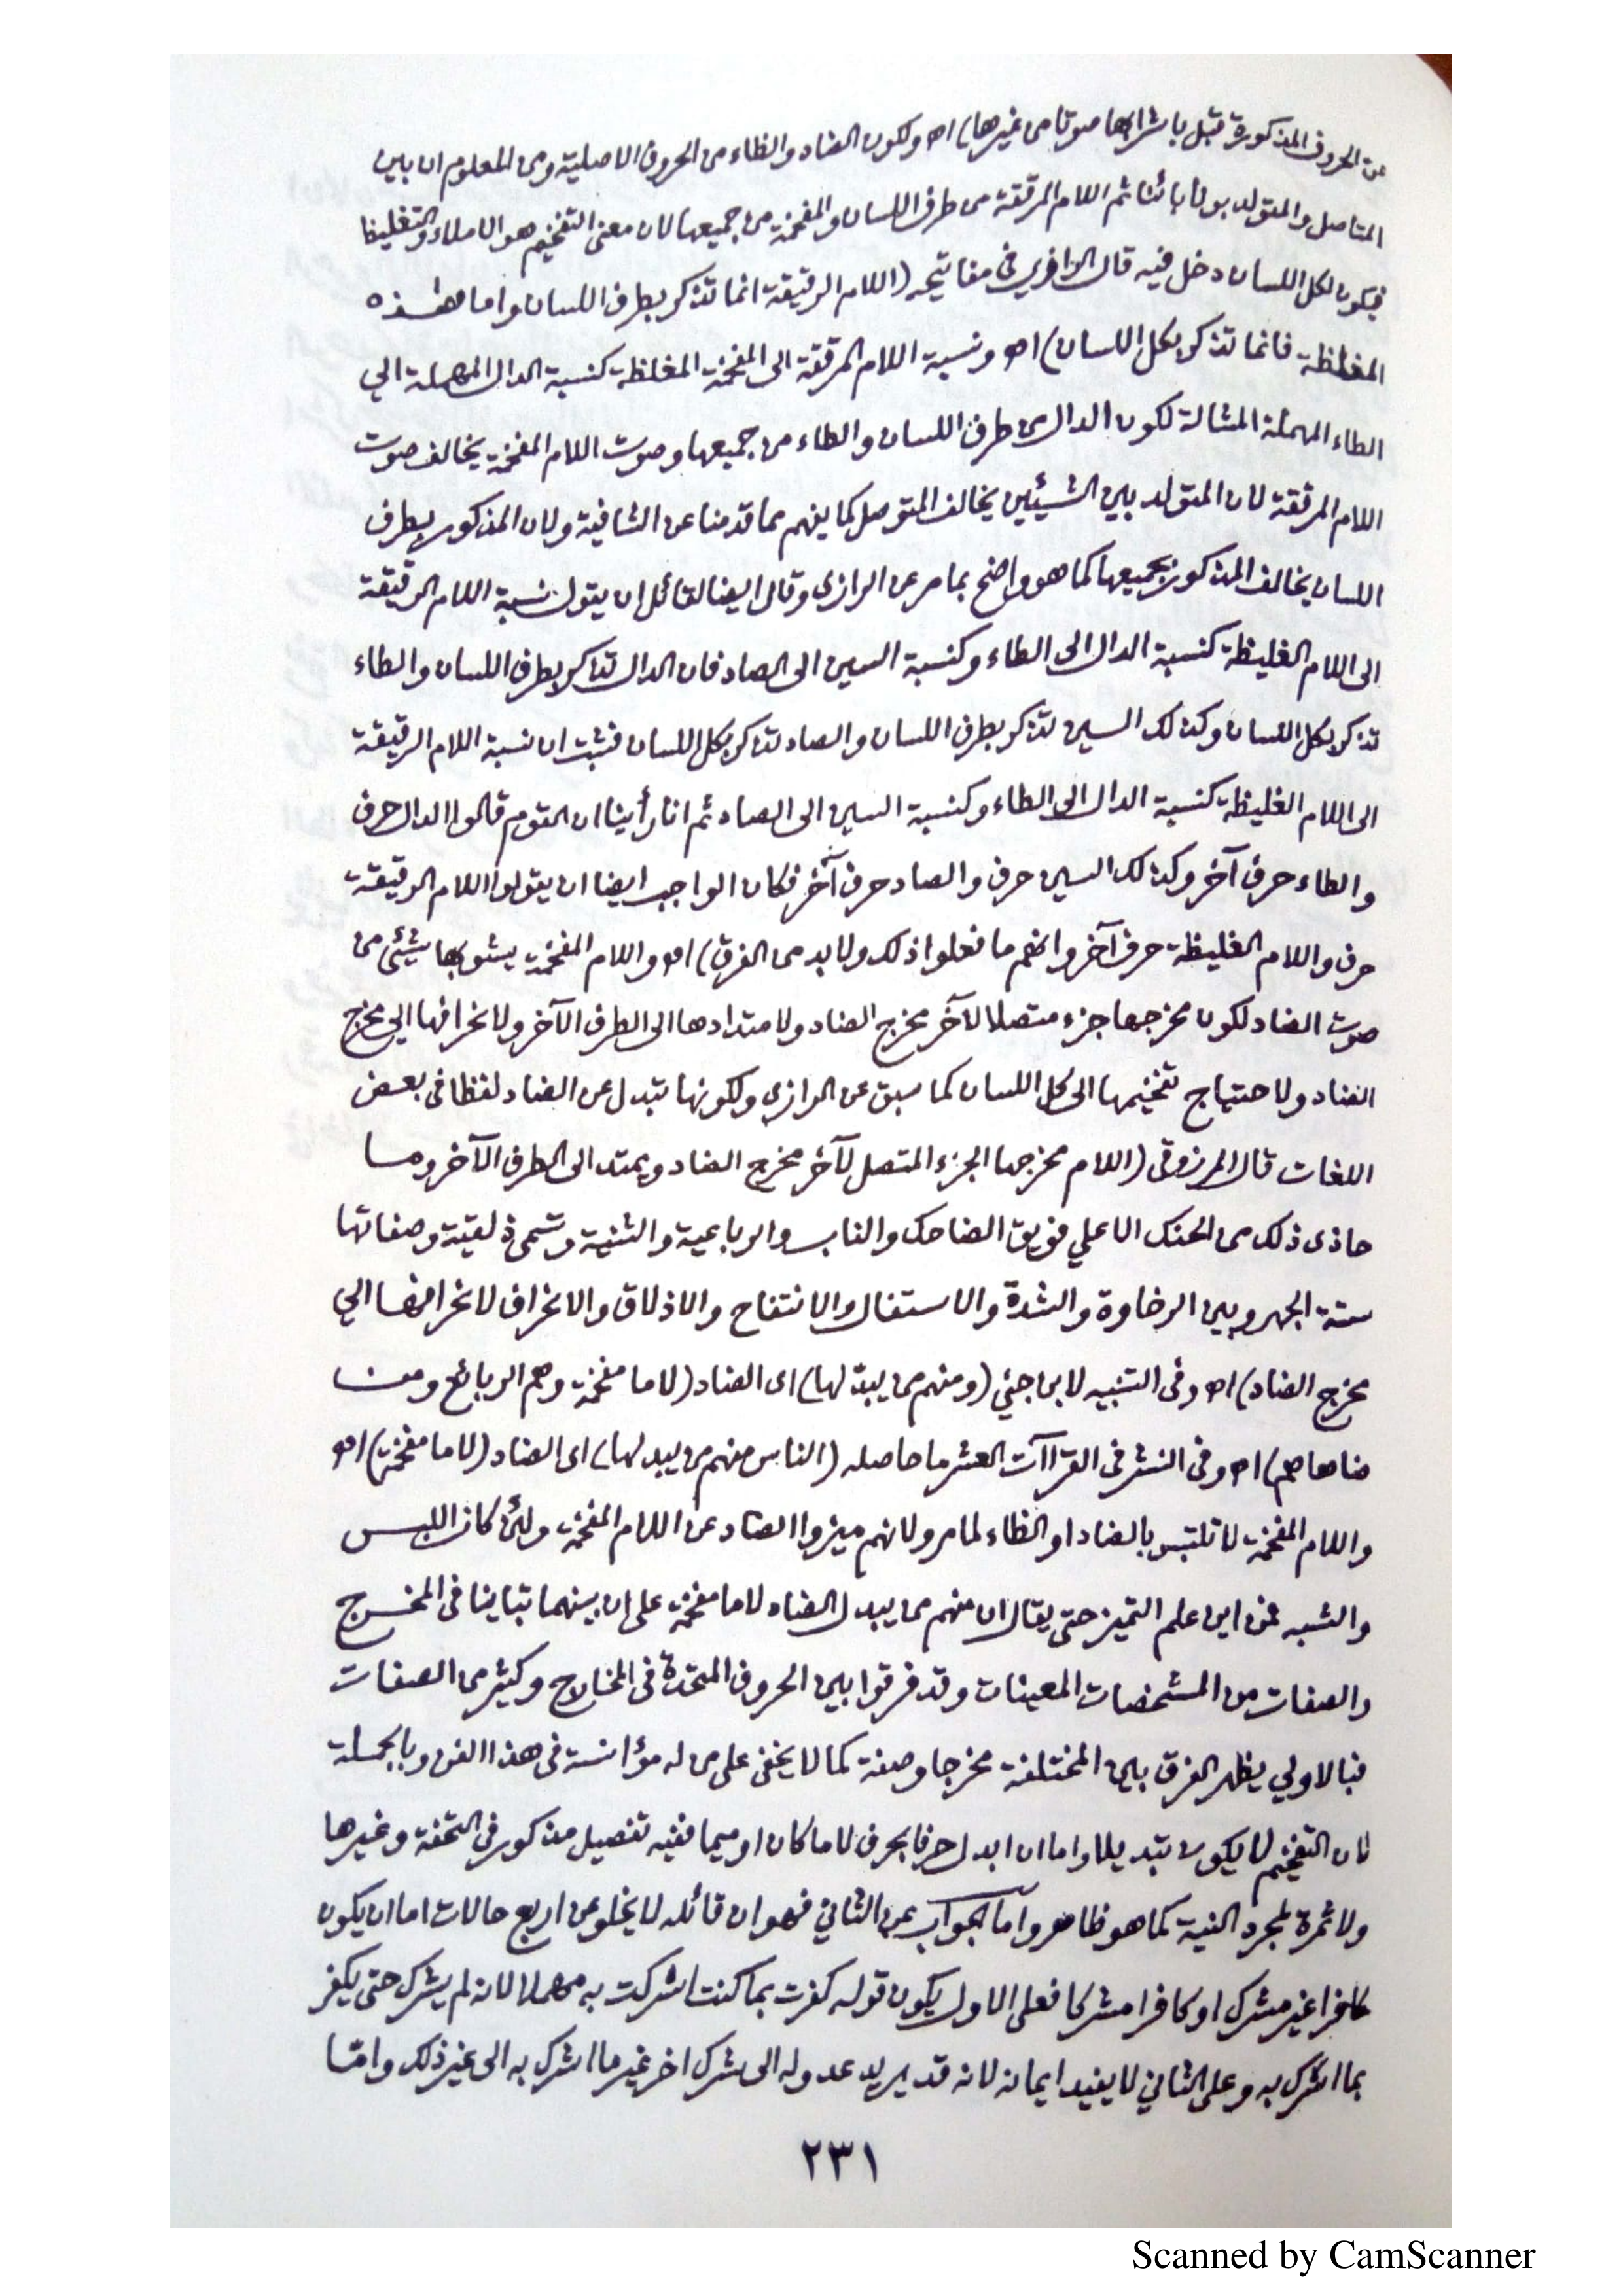 من الحروف المذكورة قبل باشرابها صوتا من غيرها) اه ولكون الضاد والظاء من الحروف الاصلية ومن المعلوم ان بين
المتاصل والمتولد بونا بائنا ثم اللام المرققة من طرف اللسان والمفخمة من جميعها لان معنى التفخيم هو الاملاء والتغليظ
فيكون لكل اللسان دخل فيه قال الرازي في مفاتيحه (اللام الرقيقة انما تذكر بطرف اللسان واما هذه
المغلظة فانما تذكر بكل اللسان) اه ونسبة اللام المرققة الى المفخمة المغلظة كنسبة الدال المهملة الي
الطاء المهملة المشالة لكون الدال من طرف اللسان والطاء من جميعها وصوت اللام المفخمة يخالف صوت
اللام المرققة لان المتولد بين الشيئين يخالف المتوصل كما يفهم مما قدمنا عن الشافية ولان المذكور بطرف
اللسان يخالف المذكور بجميعها كما هو واضح بما مر عن الرازي وقال ايضا لقائل ان يقول نسبة اللام الرقيقة
الى اللام الغليظة كنسبة الدال الى الطاء وكنسبة السين الى الصاد فان الدال تذكر بطرف اللسان والطاء
تذكر بكل اللسان وكذلك السين تذكر بطرف اللسان والصاد تذكر بكل اللسان فثبت ان نسبة اللام الرقيقة
الى اللام الغليظة كنسبة الدال الى الطاء وكنسبة السين الى الصاد ثم انا رأينا ان القوم قالوا الدال حرف
والطاء حرف آخر وكذلك السين حرف والصاد حرف آخر فكان الواجب ايضا ان يقولوا اللام الرقيقة
حرف واللام الغليظة حرف آخر وانهم ما فعلوا ذلك ولا بد من الفرق) اه واللام المفخمة يشوبها شيئ من
صوت الضاد لكون مخرجها جزء متصلا لآخر مخرج الضاد ولامتدادها الى الطرف الآخر ولانحرافها الي مخرج
الضاد ولاحتياج تفخيمها الى كل اللسان كما سبق عن الرازي ولكونها تبدل عن الضاد لفظا في بعض
اللغات قال المرزوقى (اللام مخرجها الجزء المتصل لآخر مخرج الضاد ويمتد الى الطرف الآخر وما
حاذى ذلك من الحنك الاعلي فويق الضاحك والناب والرباعية والثنية وتسمى ذلقية وصفاتها
ستة الجهر وبين الرخاوة والشدة والاستفال والانفتاح والاذلاق والانحراف لانحرافها الي
مخرج الضاد) اه وفى التنبيه لابن جني (ومنهم من يبدّلها) اى الضاد (لاما مفخمة وهم الزيالع ومن
ضاهاهم) اه وفى النشر فى القراآت العشر ما حاصله (الناس منهم من يبدلها) اى الضاد (لاما مفخمة) اه
واللام المفخمة لا تلتبس بالضاد او الظاء لما مر ولانهم ميزوا الضاد عن اللام المفخمة ولئن كان اللبس
والشبه فمن اين علم التميز حتى يقال ان منهم من يبدل الضاد لاما مفخمة على ان بينهما تباينا فى المخرج
والصفات من المشخصات المعينات وقد فرقوا بين الحروف المتحدة فى المخارج وكثير من الصفات
فبالاولي يظهر الفرق بين المختلفة مخرجا وصفة كما لا يخفى على من له مؤانسة فى هذا الفن وبالجملة
فان التفخيم لا يكون تبديلا واما ان ابدل حرفا بحرف لاما كان او ميما ففيه تفصيل مذكور في التحفة وغيرها
ولا ثمرة لمجرد النية كما هو ظاهر وأما الجواب عن الثاني فهو ان قائله لا يخلو عن اربع حالات اما ان يكون
كافرا غير مشرك او كافرا مشركا فعلى الاول يكون قوله كفرت بما كنت اشركت به مهملا لانه لم يشرك حتى يكفر
بما اشرك به وعلى الثاني لا يفيد ايمانه لانه قد يريد عدوله الى شرك اخر غير ما اشرك به الى غير ذلك وامّا
٢٣١
Scanned by CamScanner